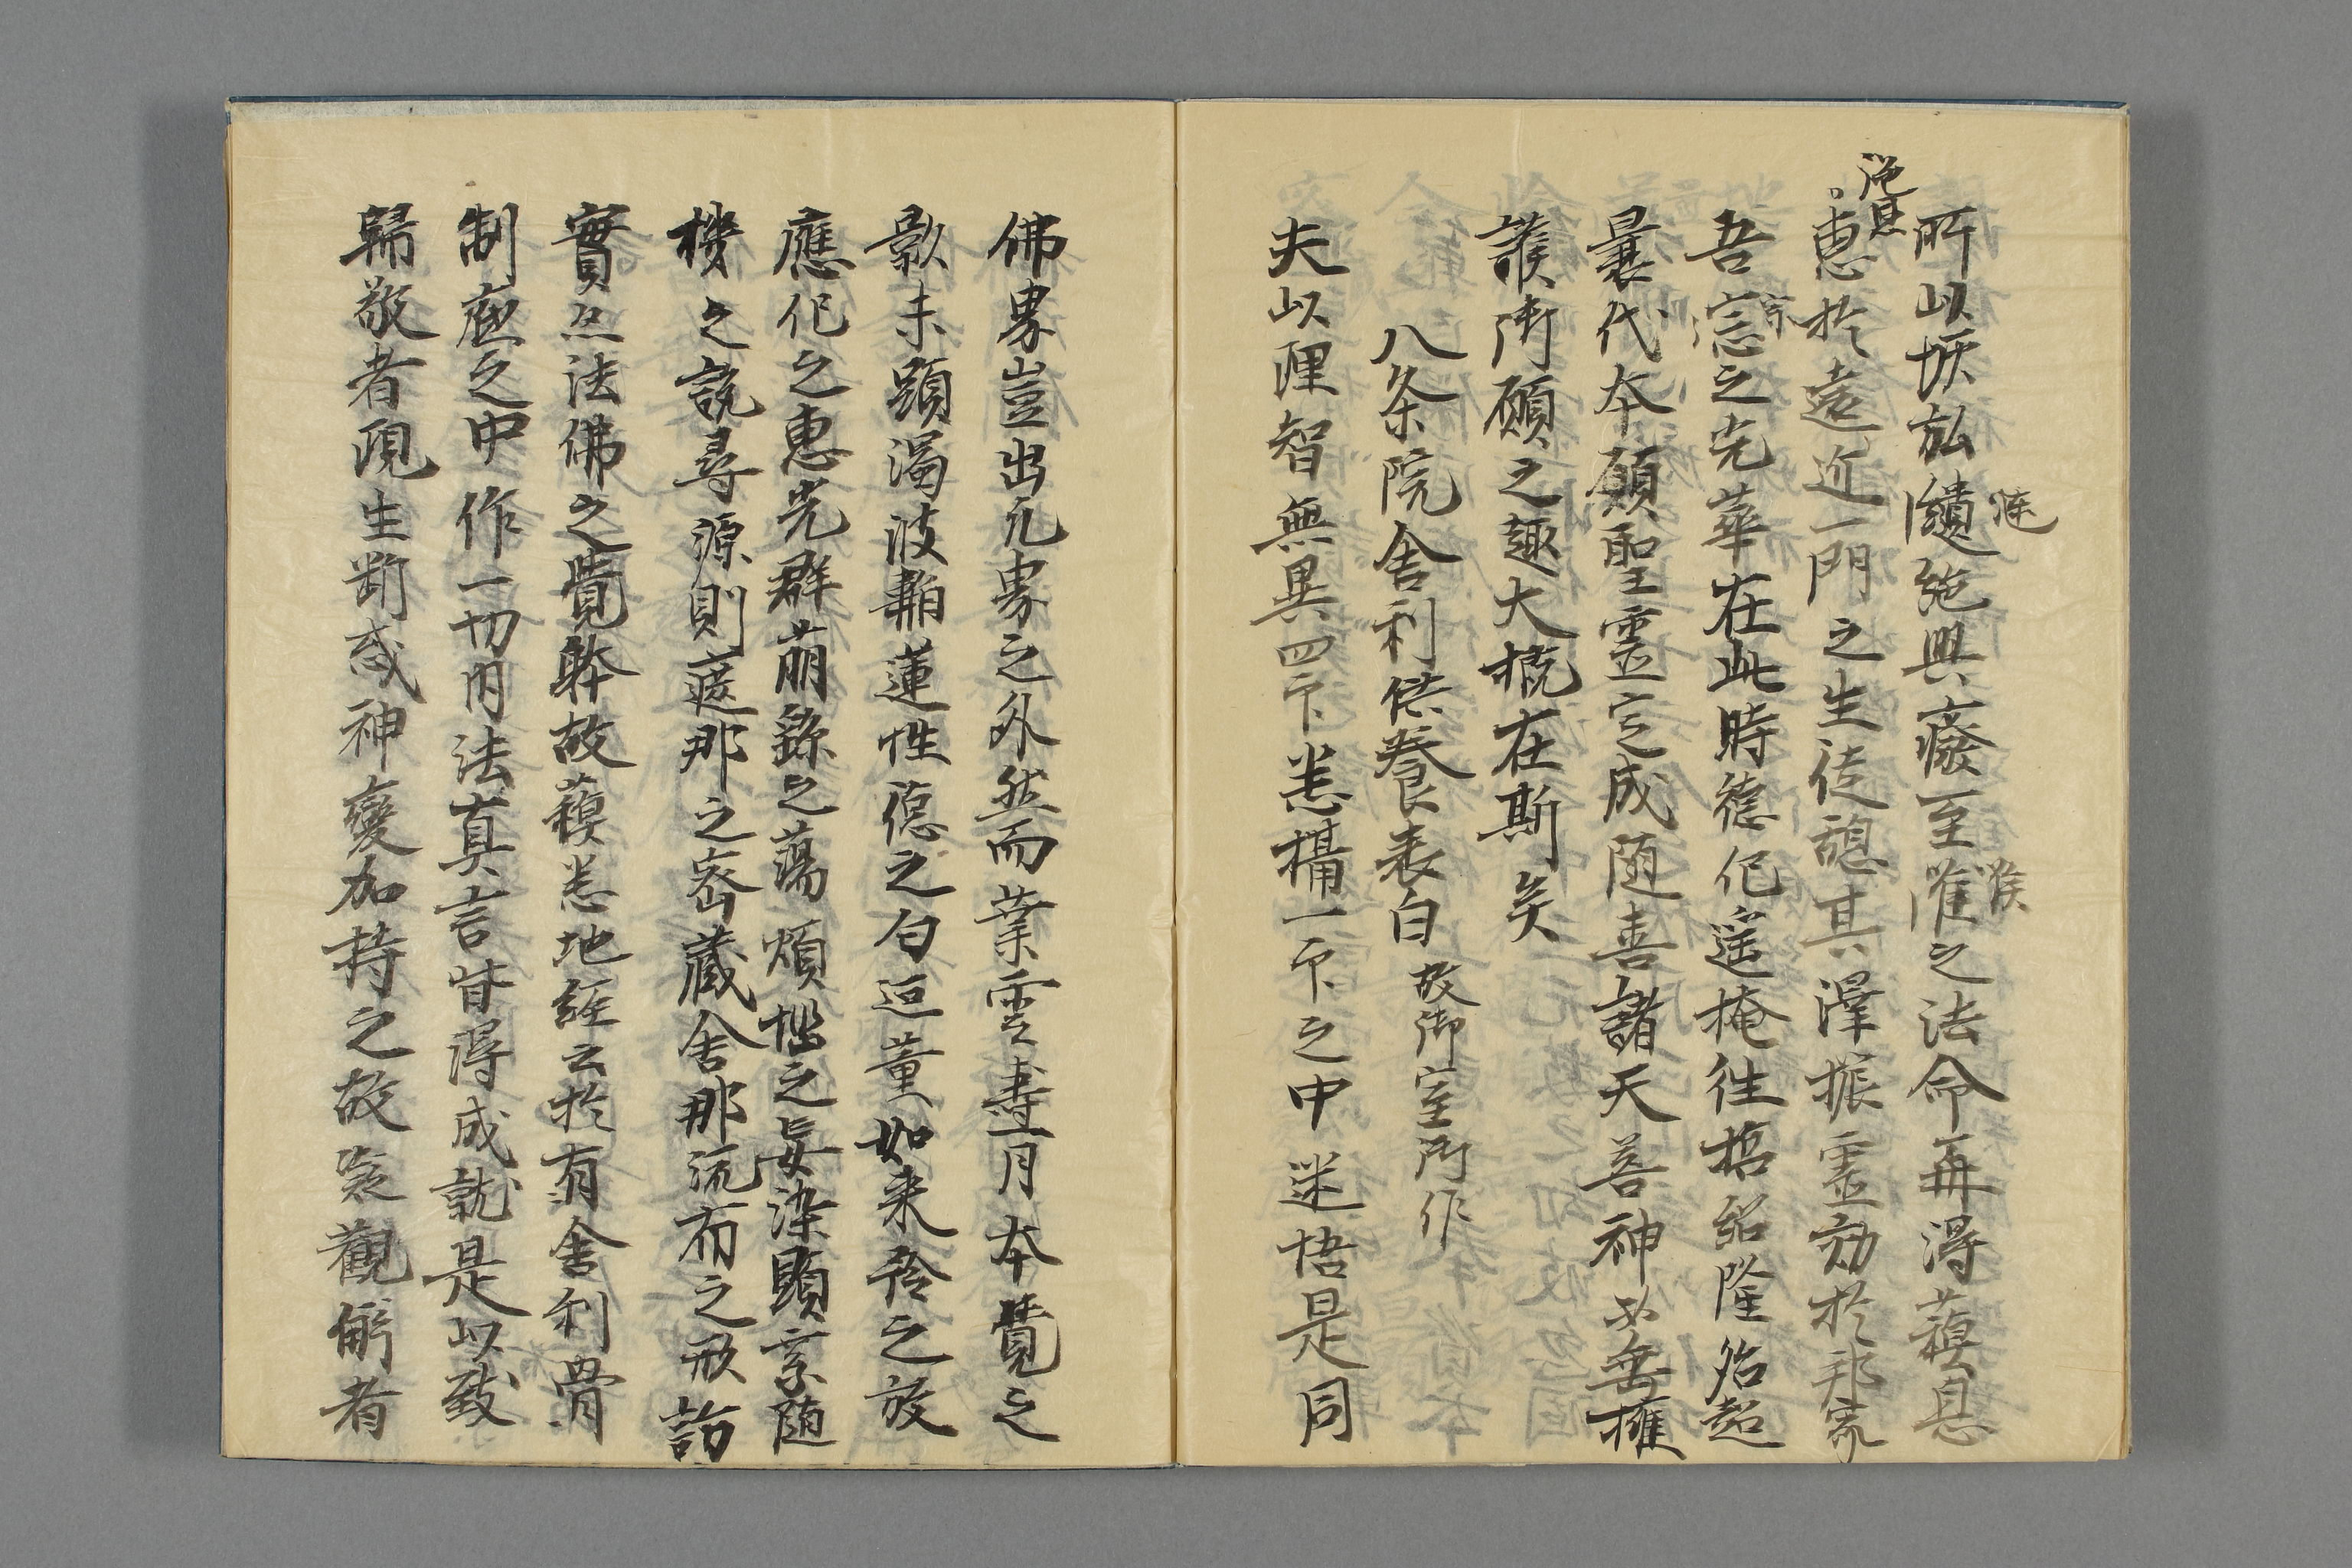 所以恢弘隤絶興癈至灌之法命再得蘊息
施恩
恵於遠近一門之生徒認其澤振霊効於邦家
吾宗之光華在此時徳化遥掩往哲紹隆殆超
曩代本願聖霊定成随喜諸天善神必垂擁
護所願之趣大概在斯矣
八条院舎利供養表白 故御室御作
夫以理智無異四印悉攝一印之中迷悟是同
佛界豈出凡界之外然而業雲𦶜月本覺之
影未顕濁波翻蓮性徳之匂迴薫如来矜之放
應化之恵光群萠録之蕩煩惱之妄染顕家随
機之説尋源則遮那之密蔵舎那流布之形訪
實亦法佛之覺躰故蘓悉地経云於有舎利骨
制底之中作一切内法真言皆得成就是以致
歸敬者現生断惑神變加持之故凝觀解者